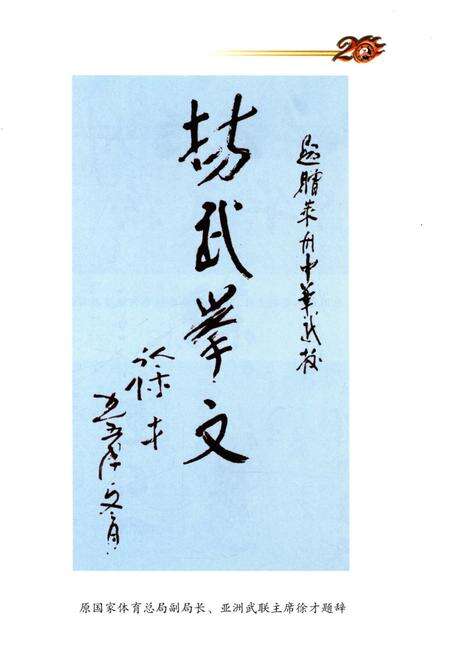 20
题赠莱州中华武校
扬武举文
徐才
原国家体育总局副局长、亚洲武联主席徐才题辞